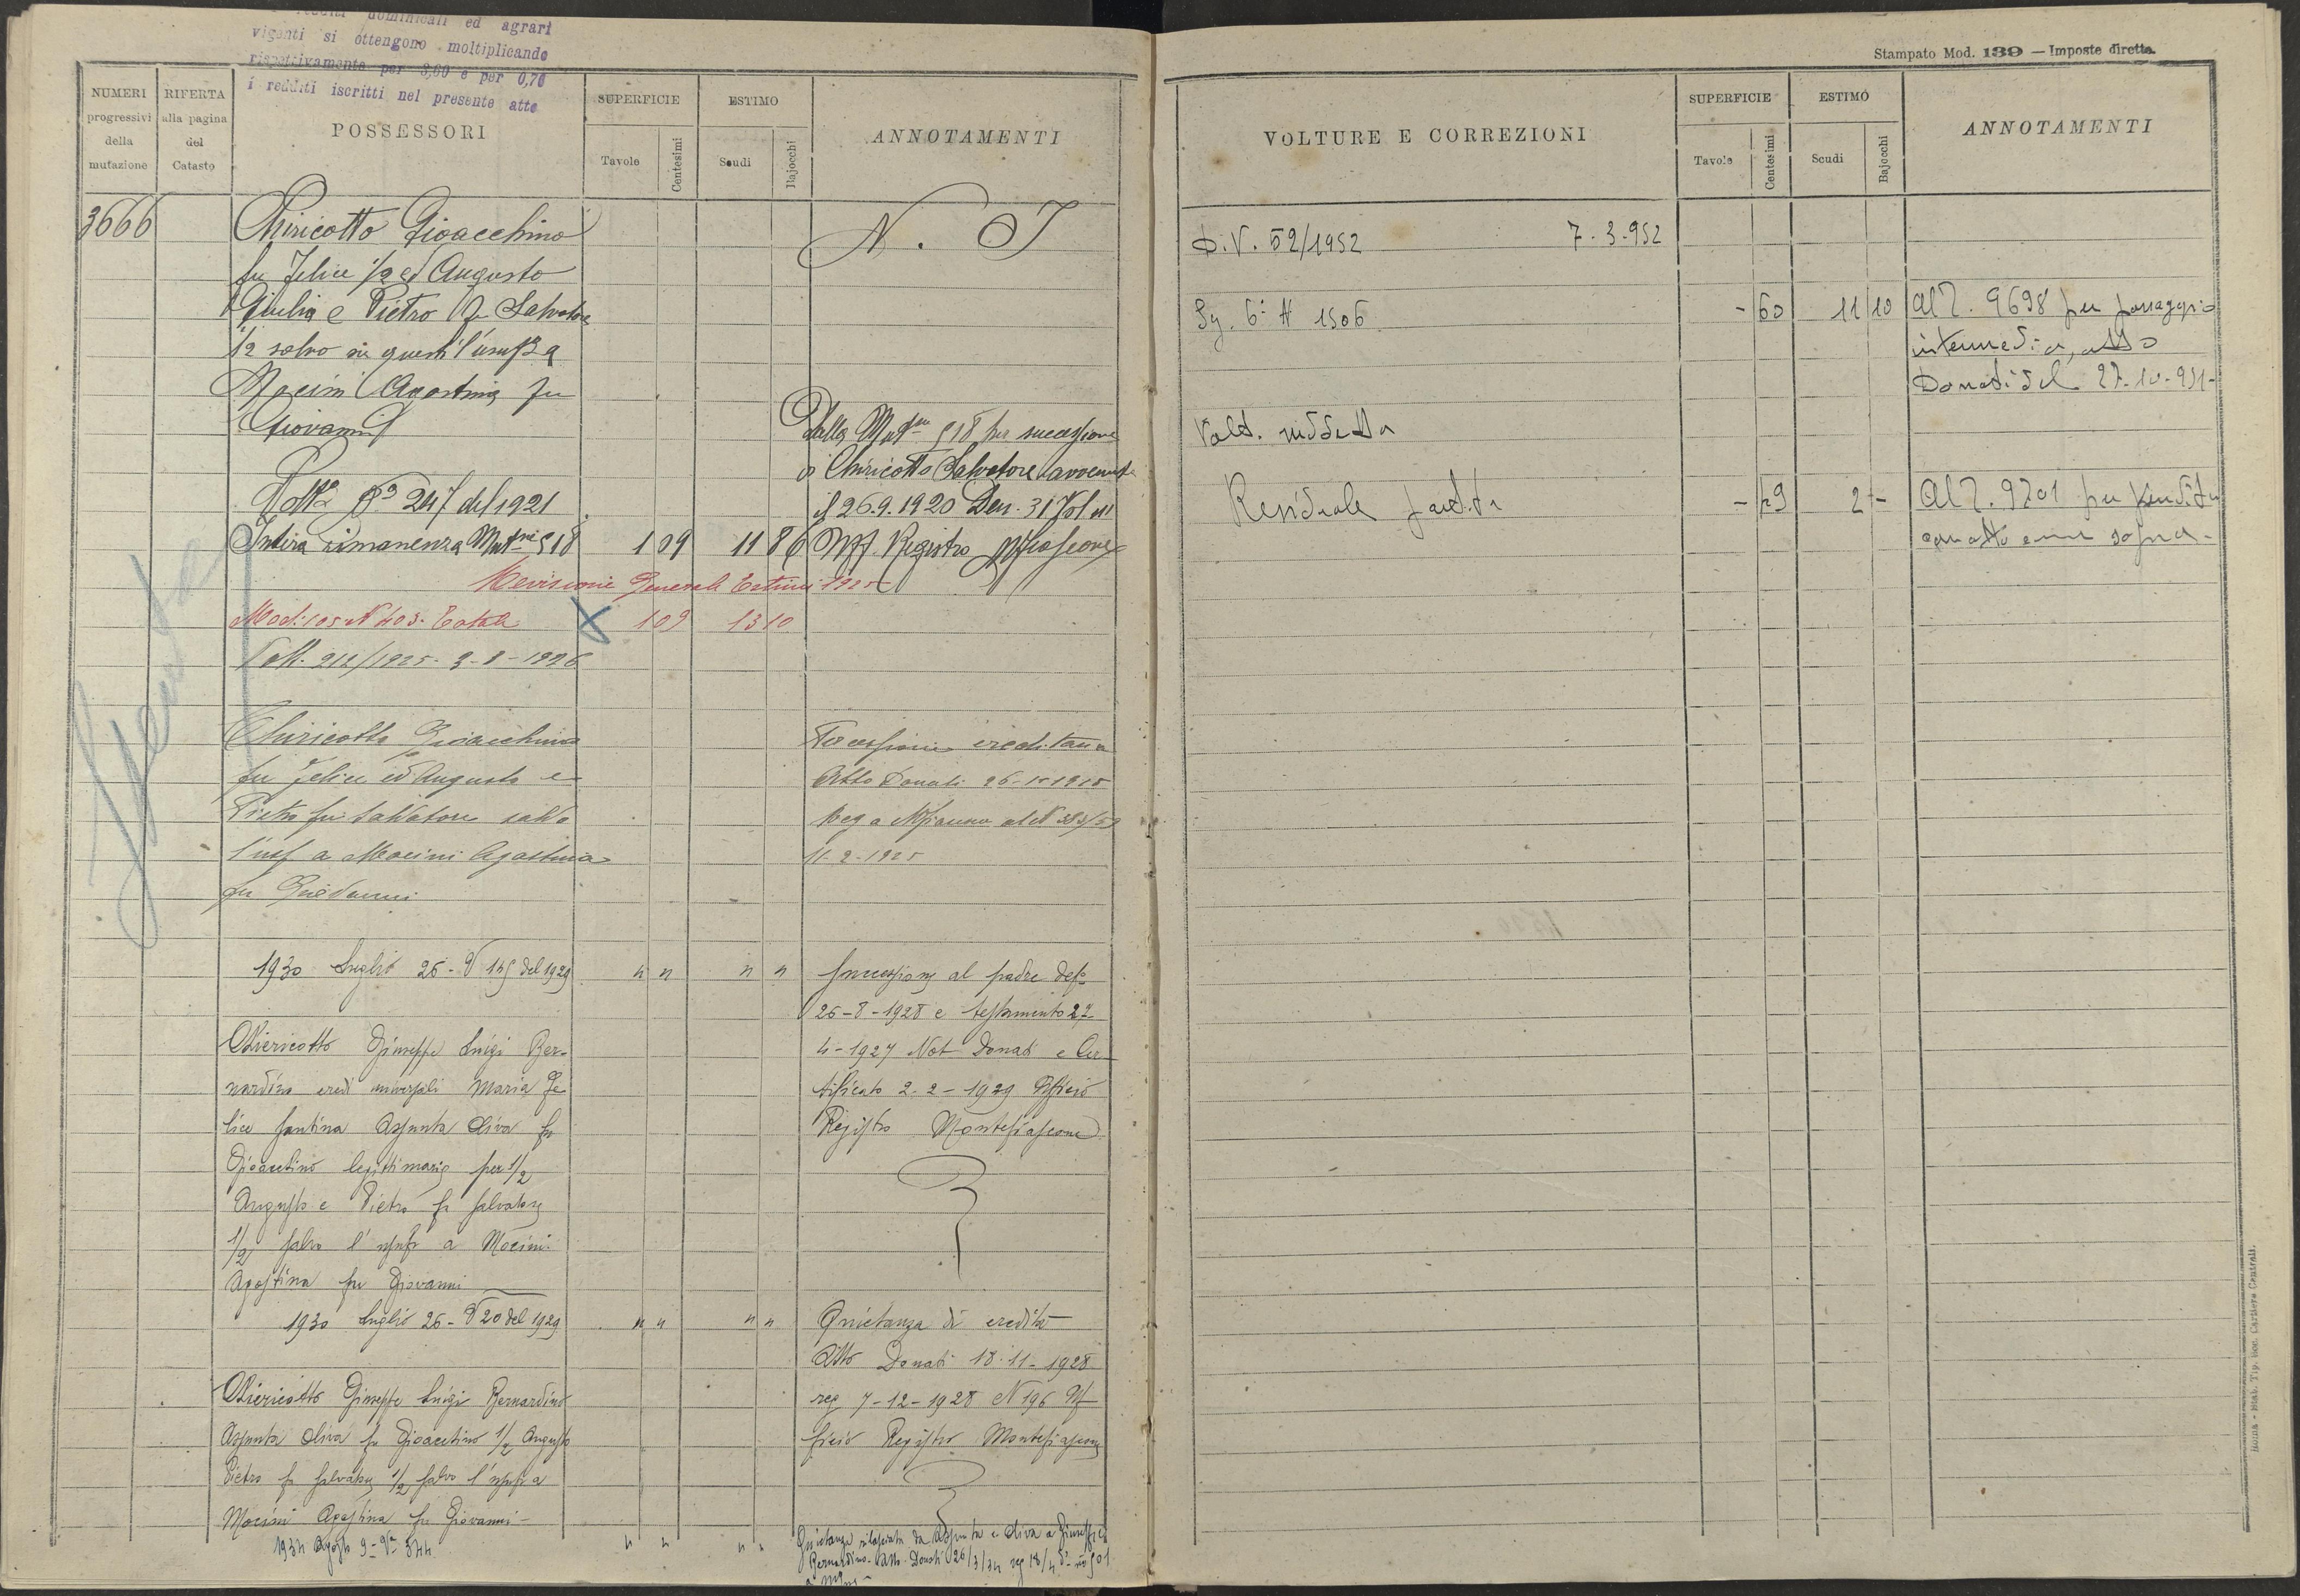 dominicali ed agrari
vigenti si ottengono moltiplicando
rispettivamente per 3,60 e per 0,70
i redditi iscritti nel presente atto
NUMERI progressivi della mutazione
RIFERTA alla pagina del Catasto
POSSESSORI
SUPERFICIE
Tavole Centesimi
ESTIMO
Scudi Bajocchi
ANNOTAMENTI
3666 Chiricotto Gioacchino N. T
fu Felice 1/2 ed Augusto
Giulia e Pietro fu Salvatore
1/2 salvo su questi l'usuf a
Mocini Agostina fu
Giovanni
Dalla Mut 518 per successione
Chiricotto Salvatore avvenuta
Volta 247 del 1921 il 26.9.1920 Den. 31 Vol
Intera rimanenza 518 1 09 11 86 Uff. Registro
Revisione Generale Estimi 1925
Mod: 105 N 403. Totale 1 09 13 10
Volt. 212/1925. 3-8-1926
Chiricotto Gioacchino
fu Felice ed Augusto e
Pietro fu Salvatore salvo
l'usf a Mocini Agostina
fu Giovanni
ereditaria
Atto Donati 26-1-1925
Reg a
11-2-1925
1930 Luglio 26 - V 145 del 1929 " " " " Successione al padre def
26-8-1928 e testamento 27
Chiericotto Giuseppe Luigi Ber- 4-1927 Not Donati e Cer
nardino eredi universali Maria Fe tificato 2-2-1929 Ufficio
lice Santina Assunta Oliva fu Registro Montefiascone
Gioacchino legittimario per 1/2
Augusto e Pietro fu Salvatore
1/2 salvo l'usuf a Mocini
Agostina fu Giovanni
1930 Luglio 26 - V 20 del 1929 " " " " Quietanza di eredità
Atto Donati 18-11-1928
Chiericotto Giuseppe Luigi Bernardino reg 7-12-1928 N 196 Uf
Assunta Oliva fu Gioacchino 1/2 Augusto ficio Registro Montefiascone
Pietro fu Salvatore 1/2 salvo l'usuf a
Mocini Agostina fu Giovanni -
1934 Agosto 9 - 344 " " " " Quietanza rilasciata da Assunta e Oliva a Giuseppe e
Bernardino - Atto Donati 26/3/34 reg 18/4 501
Stampato Mod. 139 — Imposte dirette.
VOLTURE E CORREZIONI
SUPERFICIE
Tavole Centesimi
ESTIMO
Scudi Bajocchi
ANNOTAMENTI
D.V. 52/1952 7-3-952
6 1506 - 60 11 10 Al 9698 per passaggio
intermedio, atto
Donati del 27-10-951-
Volt. suddetta
Residuale partita 2 - Al 9701 per vendita
con atto come sopra -
Roma - Stab. Tip. Soc. Cartiere Centrali.